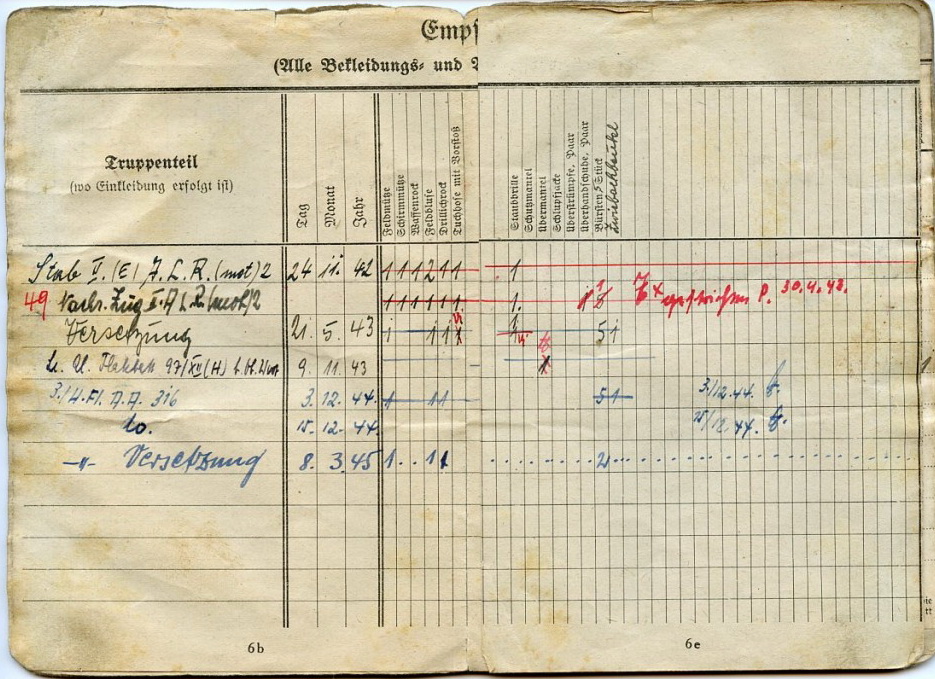 Empf
(Alle Bekleidungs- und
Truppenteil
(wo Einkleidung erfolgt ist)
Tag
Monat
Jahr
Feldmütze
Schirmmütze
Waffenrock
Feldbluse
Drillichrock
Tuchhose mit Vorstoß
Staubbrille
Schutzmantel
Übermantel
Schlupfjacke
Überstrümpfe, Paar
Überhandschuhe, Paar
Bürsten 5 Stück
Zwiebackbeutel
Stab V. (E) F. L. R. (mot) 2 24 11. 42 1 1 1 2 1 1 1
49 1 1 1 1 1 1 1. 1 gestrichen P. 30.4.43.
Versetzung 21. 5. 43 1 1 1 1 5 1
9. 11 43
3./ A.A. 316 3. 12. 44. 1 1 1 5 1 3./12.44.
do. 15. 12. 44. 15/12.44.
-"- Versetzung 8. 3. 45 1 . . 1 1 2
6b
6e